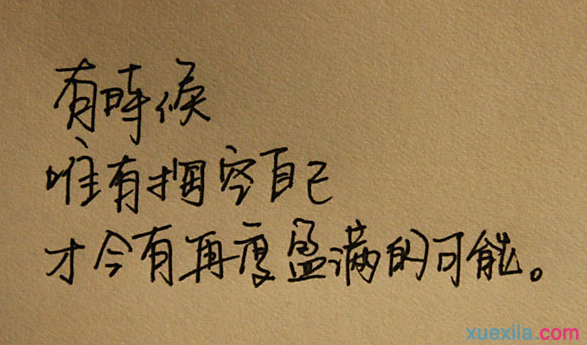 有時候
唯有掏空自己
才会有再度盈满的可能。
xuexila.com